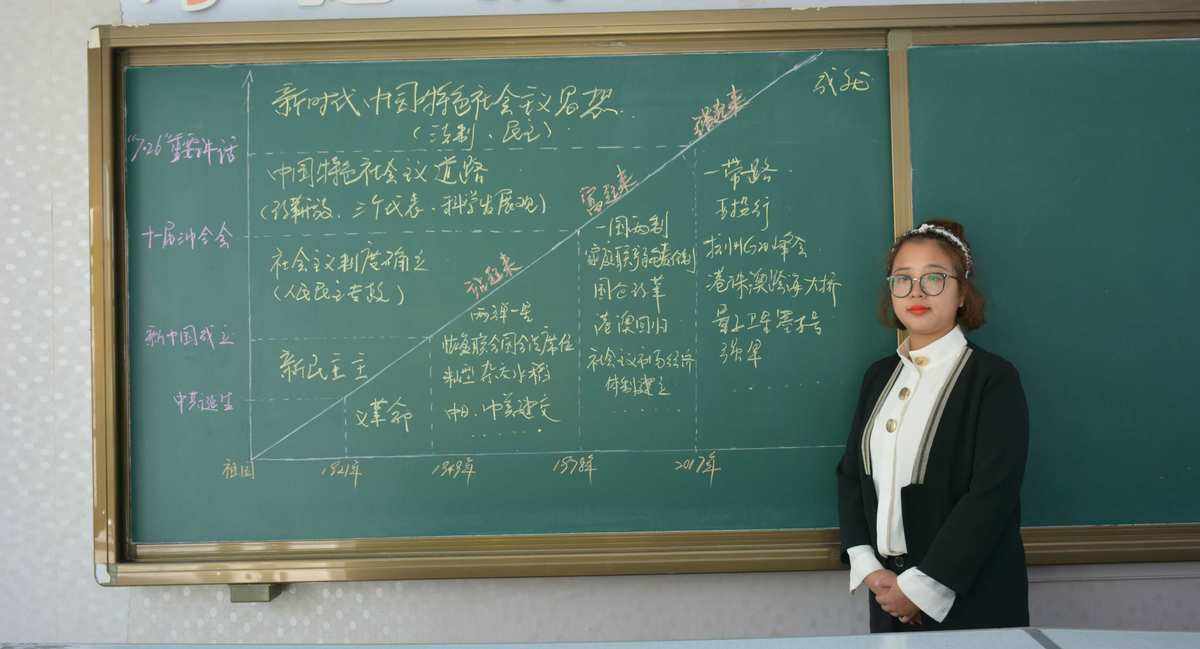 新时代中国特色社会主义思想
(法制、民主)
成就
"7.26"重要讲话
中国特色社会主义道路
(改革开放、三个代表、科学发展观)
强起来
富起来
站起来
十一届三中全会
社会主义制度确立
(人民民主专政)
新中国成立
新民主主
义革命
中共诞生
两弹一星
恢复联合国合法席位
籼型杂交水稻
中日、中美建交
......
一国两制
家庭联产承包责任制
国企改革
港澳回归
社会主义市场经济
体制建立
......
一带一路
亚投行
杭州G20峰会
港珠澳跨海大桥
墨子卫星
强军
......
祖国
1921年
1949年
1978年
2017年